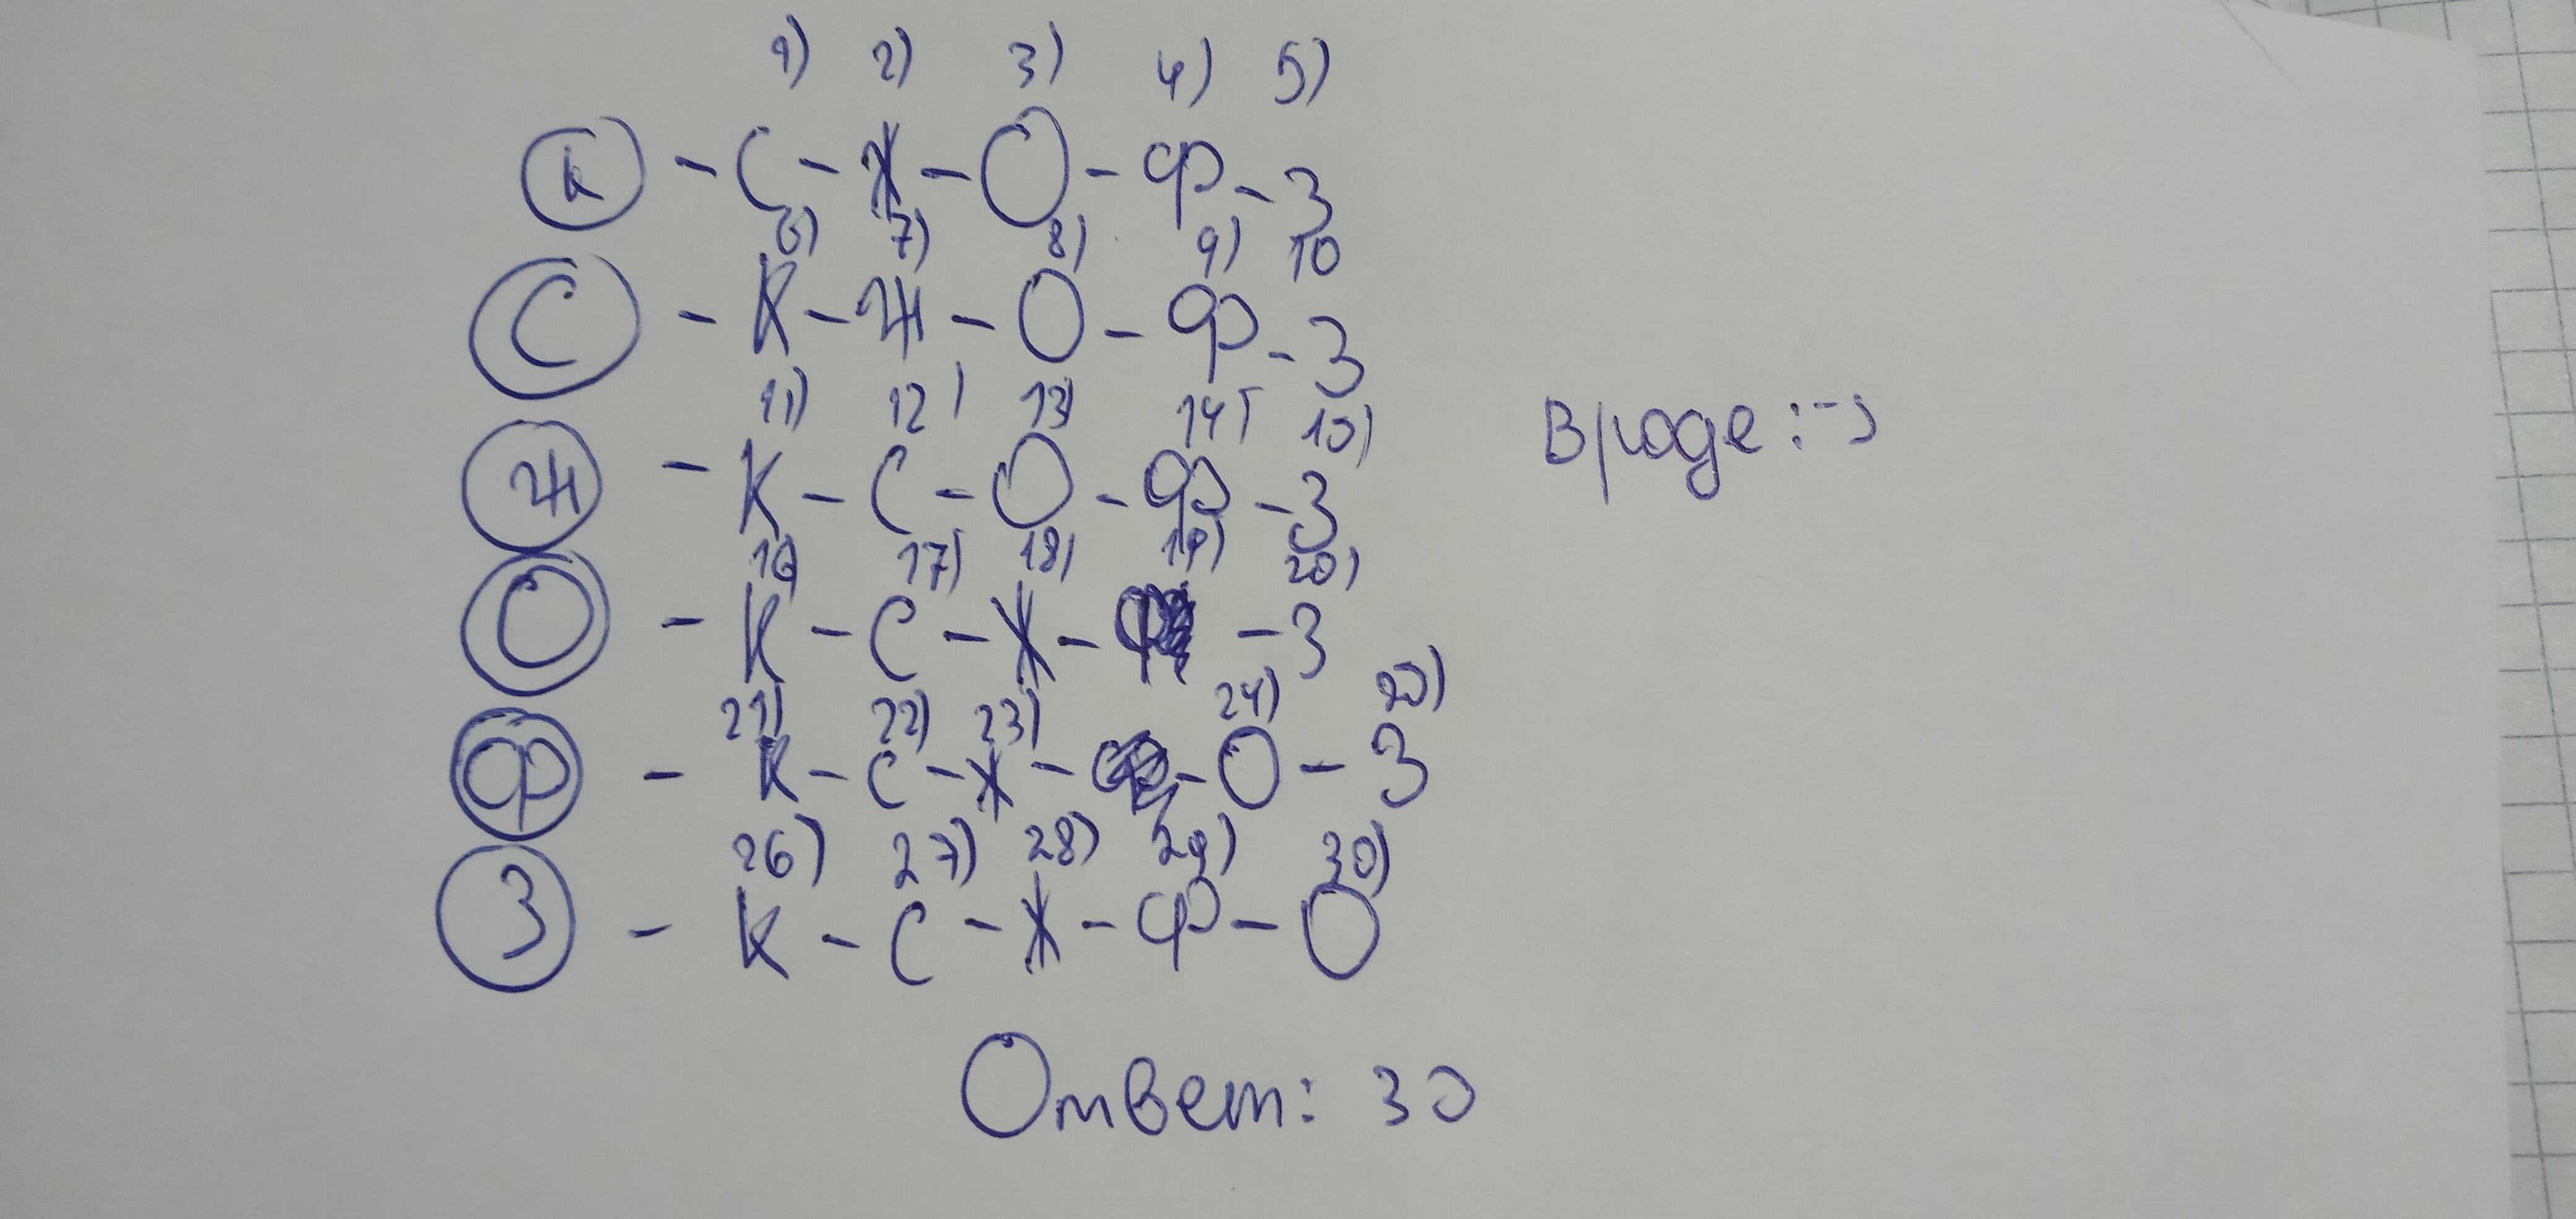 1) 2) 3) 4) 5)
К - С - Ж - О - Ф - З
6) 7) 8) 9) 10
С - К - Ж - О - Ф - З
11) 12) 13) 14) 15)
Ж - К - С - О - Ф - З
Вроде :-)
16) 17) 18) 19) 20)
О - К - С - Ж - Ф - З
21) 22) 23) 24) 25)
Ф - К - С - Ж - О - З
26) 27) 28) 29) 30)
З - К - С - Ж - Ф - О
Ответ: 30